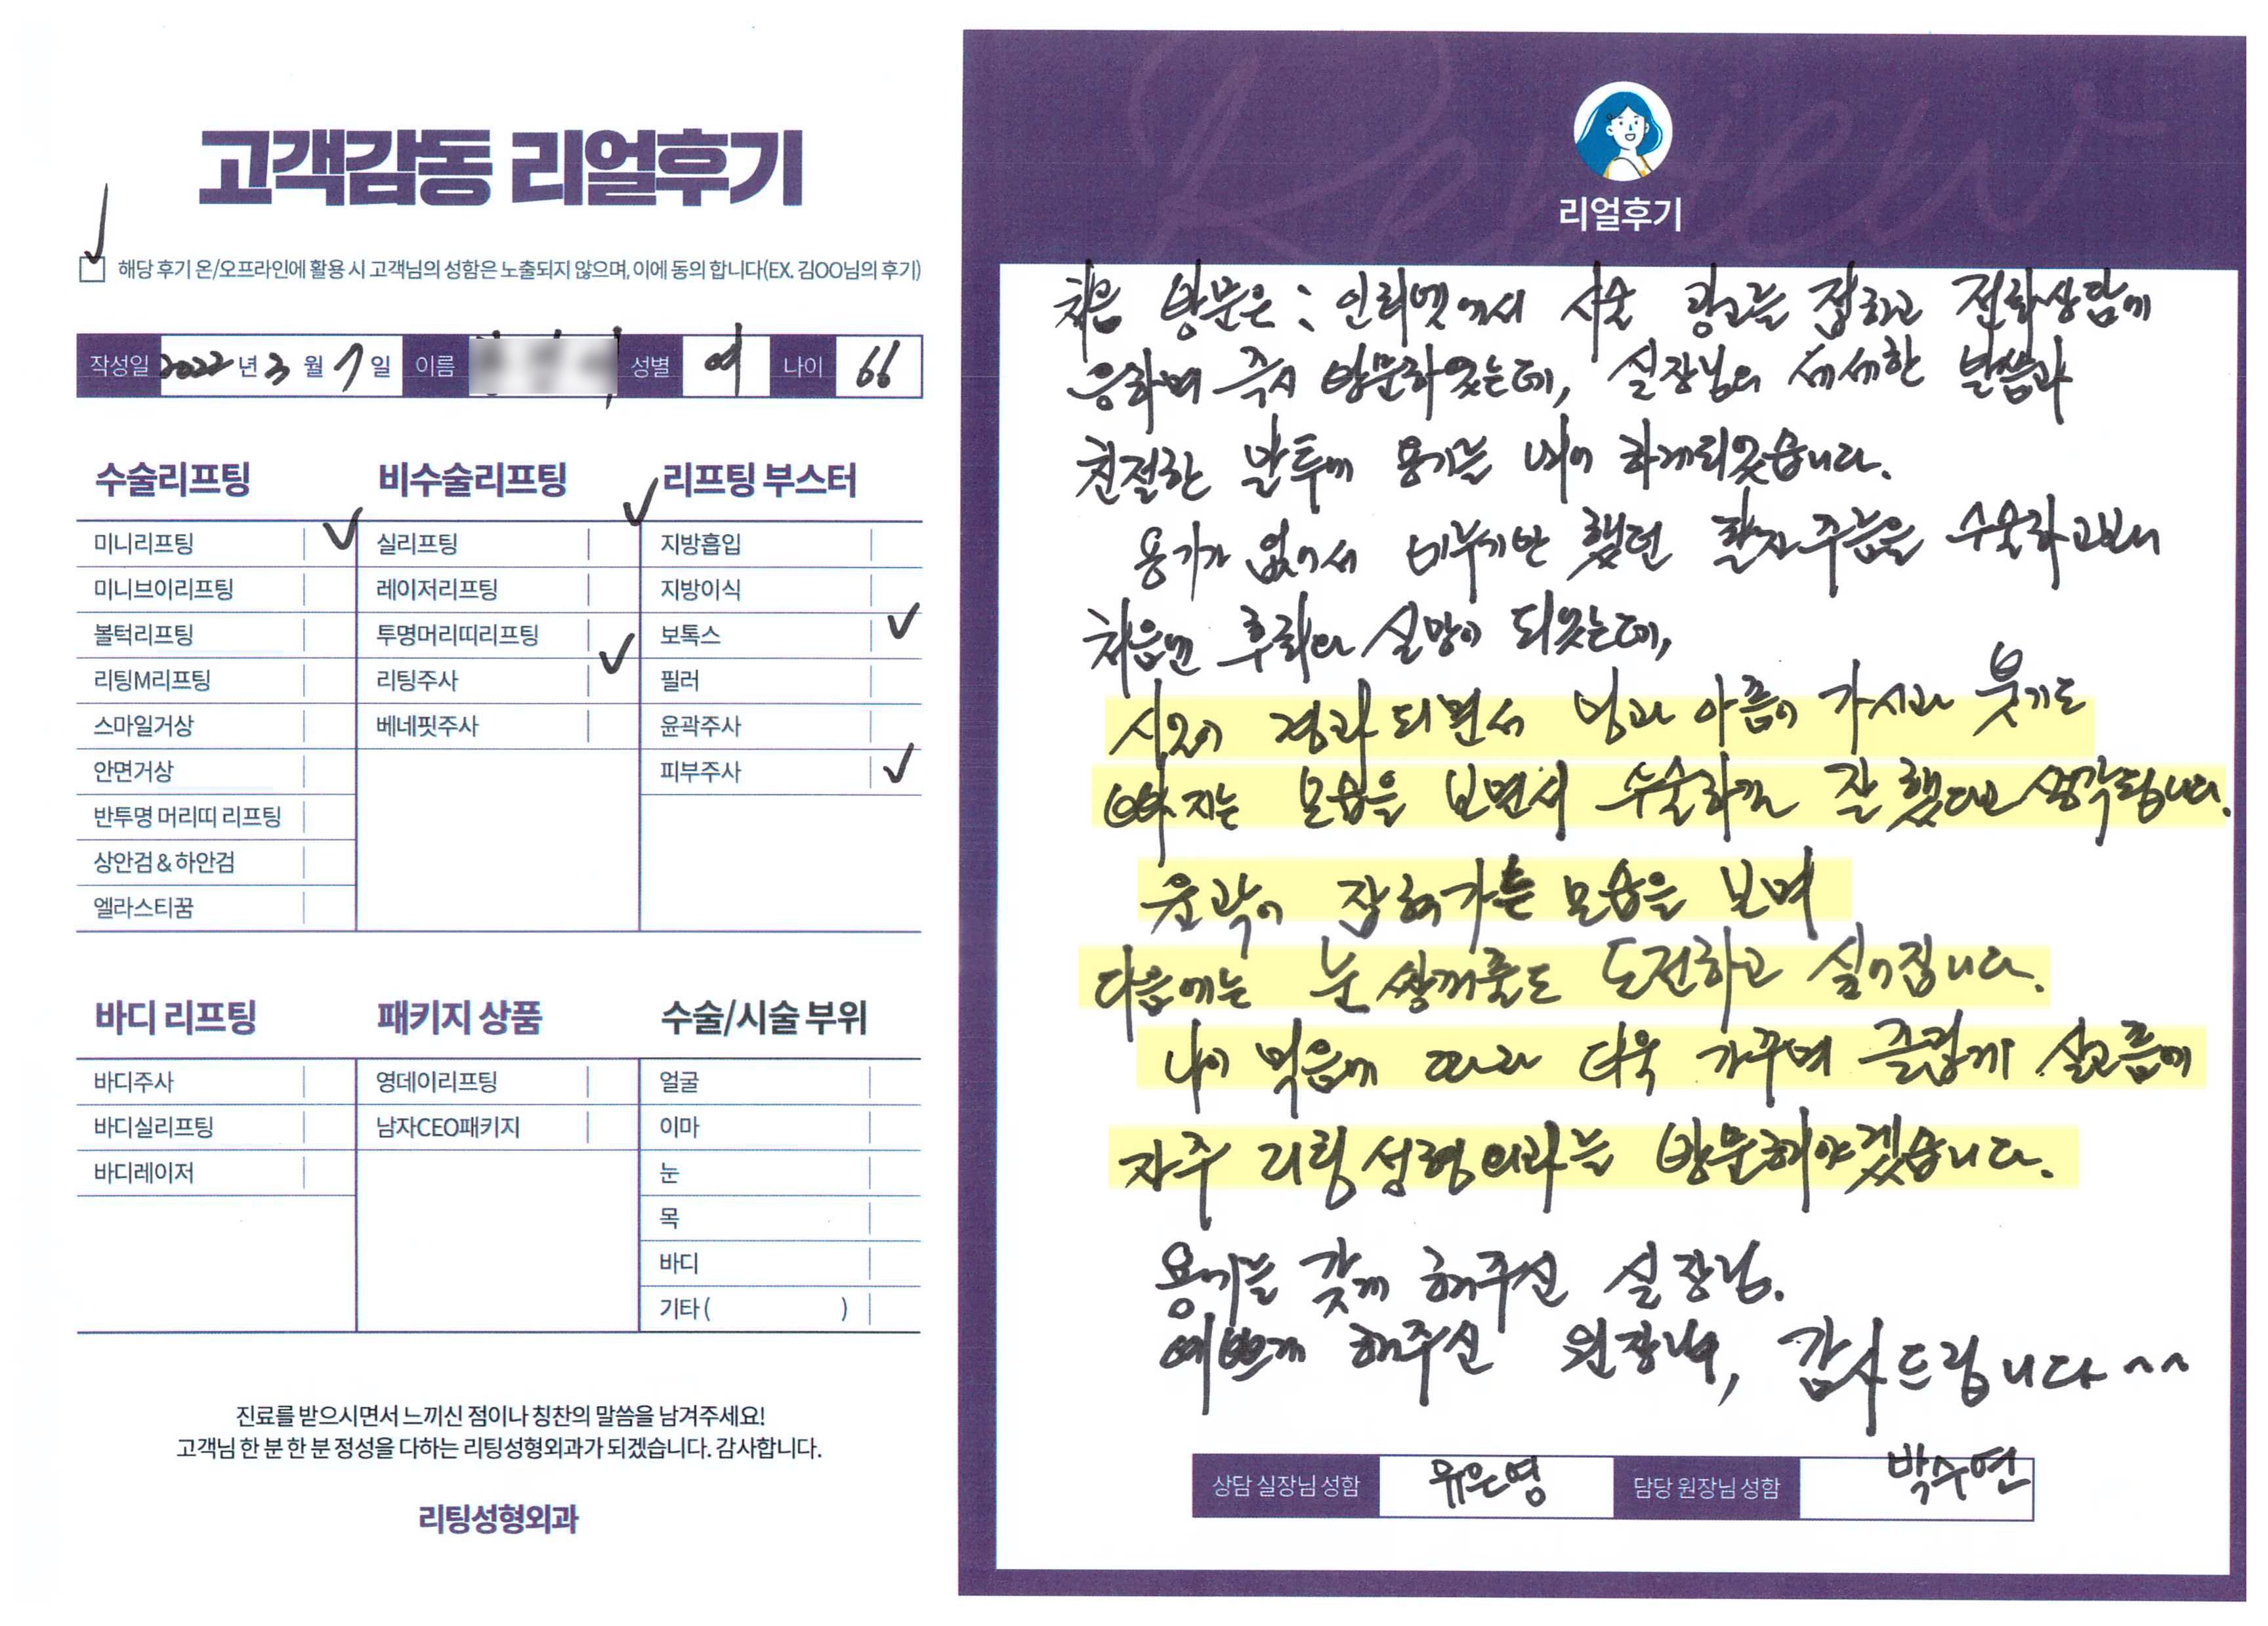 고객감동 리얼후기
해당 후기 온/오프라인에 활용 시 고객님의 성함은 노출되지 않으며, 이에 동의 합니다(EX. 김OO님의 후기)
작성일 2022 년 3 월 7 일 이름 성별 여 나이 66
수술리프팅
미니리프팅
미니브이리프팅
볼턱리프팅
리팅M리프팅
스마일거상
안면거상
반투명 머리띠 리프팅
상안검 & 하안검
엘라스티꿈
비수술리프팅
실리프팅
레이저리프팅
투명머리띠리프팅
리팅주사
베네핏주사
리프팅 부스터
지방흡입
지방이식
보톡스
필러
윤곽주사
피부주사
바디 리프팅
바디주사
바디실리프팅
바디레이저
패키지 상품
영데이리프팅
남자CEO패키지
수술/시술 부위
얼굴
이마
눈
목
바디
기타 ( )
진료를 받으시면서 느끼신 점이나 칭찬의 말씀을 남겨주세요!
고객님 한 분 한 분 정성을 다하는 리팅성형외과가 되겠습니다. 감사합니다.
리팅성형외과
Review
리얼후기
처음 방문은 : 인터넷에서 시술 광고를 접하고 전화상담에
응하며 즉시 방문하였는데, 실장님의 세세한 말씀과
친절한 말투에 용기를 내어 하게되었습니다.
용기가 없어서 미루기만 했던 팔자주름을 수술하고보니
처음엔 후회와 실망이 되었는데,
시간이 경과 되면서 멍과 아픔이 가시과 붓기도
빠지는 모습을 보면서 수술하길 잘 했다고 생각됩니다.
윤곽이 잡혀가는 모습을 보며
다음에는 눈 쌍꺼풀도 도전하고 싶어집니다.
나이 먹음에 따라 더욱 가꾸며 즐겁게 살고픔에
자주 리팅성형외과를 방문해야겠습니다.
용기를 갖게 해주신 실장님.
예쁘게 해주신 원장님, 감사드립니다 ^^
상담 실장님 성함 유은영 담당 원장님 성함 박수연